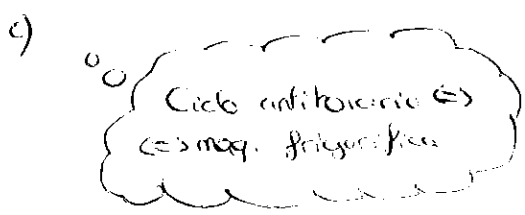 c)
Ciclo antihorario ⇔
⇔ maq. frigorífica